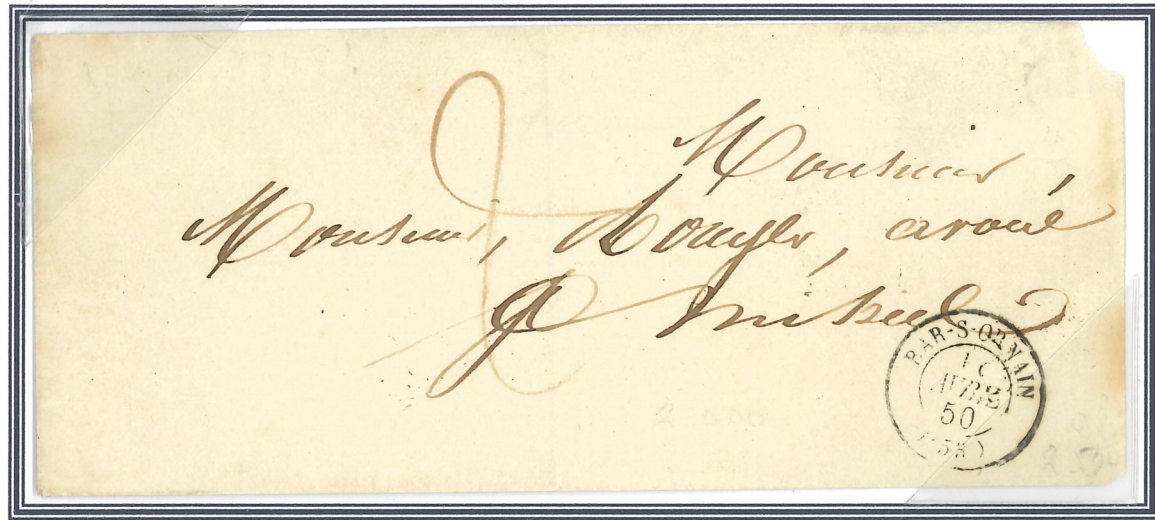 Monsieur,
Monsieur, Rouyer, avoué
St mihiel
BAR-S-ORNAIN
AVRIL
50
(53)
2 500